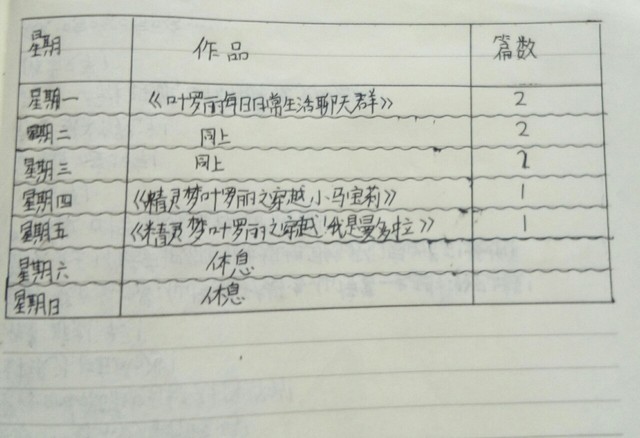 星期 作品 篇数
星期一 《叶罗丽每日日常生活聊天群》 2
星期二 同上 2
星期三 同上 2
星期四 《精灵梦叶罗丽之穿越小马宝莉》 1
星期五 《精灵梦叶罗丽之穿越!我是曼多拉》 1
星期六 休息
星期日 休息